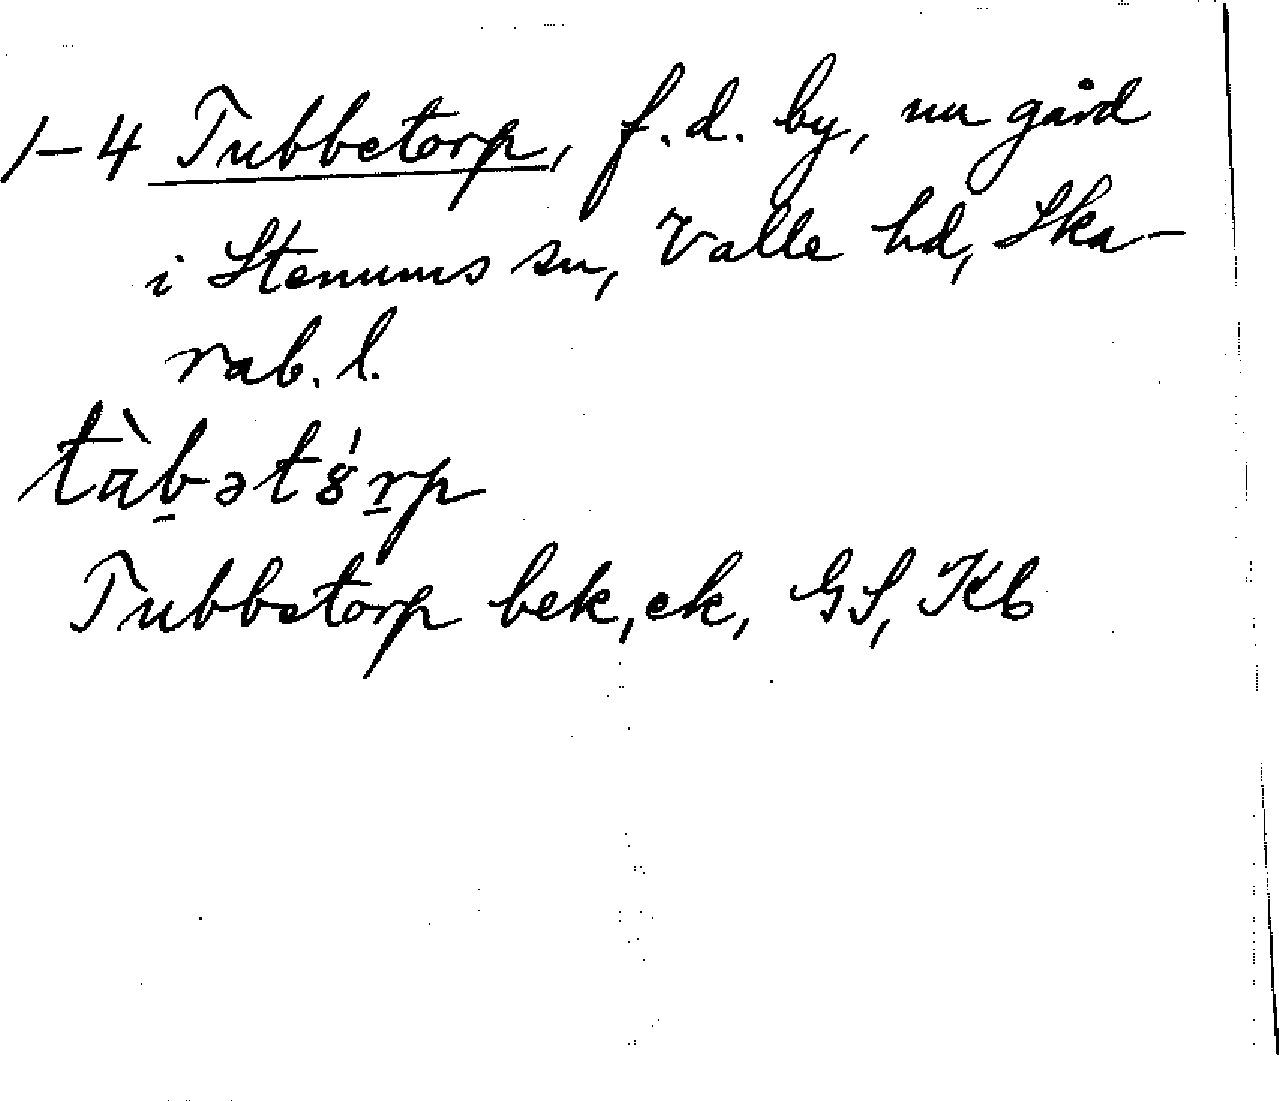 1-4 Tubbetorp, f.d. by, nu gård
i Stenums sn, Valle hd, Ska-
rab. l.
tɑ̀b̠ət8́r̠p
Tubbetorp bek, ek, GS, Kb